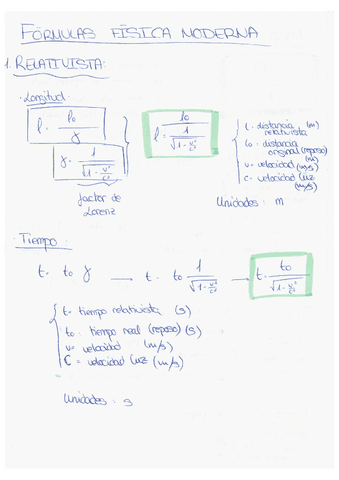 FÓRMULAS FÍSICA MODERNA
1. RELATIVISTA:
· Longitud:
l = l₀ / γ
γ = 1 / √(1 - v²/c²)
factor de Lorenz
l = l₀ / (1 / √(1 - v²/c²))
l = distancia relativista (m)
l₀ = distancia original (reposo) (m)
v = velocidad (m/s)
c = velocidad luz (m/s)
Unidades : m
· Tiempo:
t = t₀ γ → t = t₀ 1 / √(1 - v²/c²) → t = t₀ / √(1 - v²/c²)
t = tiempo relativista (s)
t₀ = tiempo real (reposo) (s)
v = velocidad (m/s)
c = velocidad luz (m/s)
Unidades : s